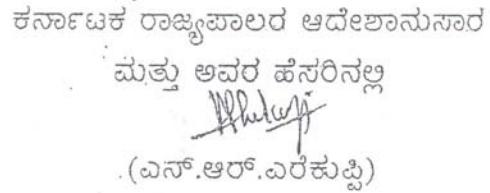 ಕರ್ನಾಟಕ ರಾಜ್ಯಪಾಲರ ಆದೇಶಾನುಸಾರ
ಮತ್ತು ಅವರ ಹೆಸರಿನಲ್ಲಿ
(ಎನ್.ಆರ್.ಎರೆಕುಪ್ಪಿ)